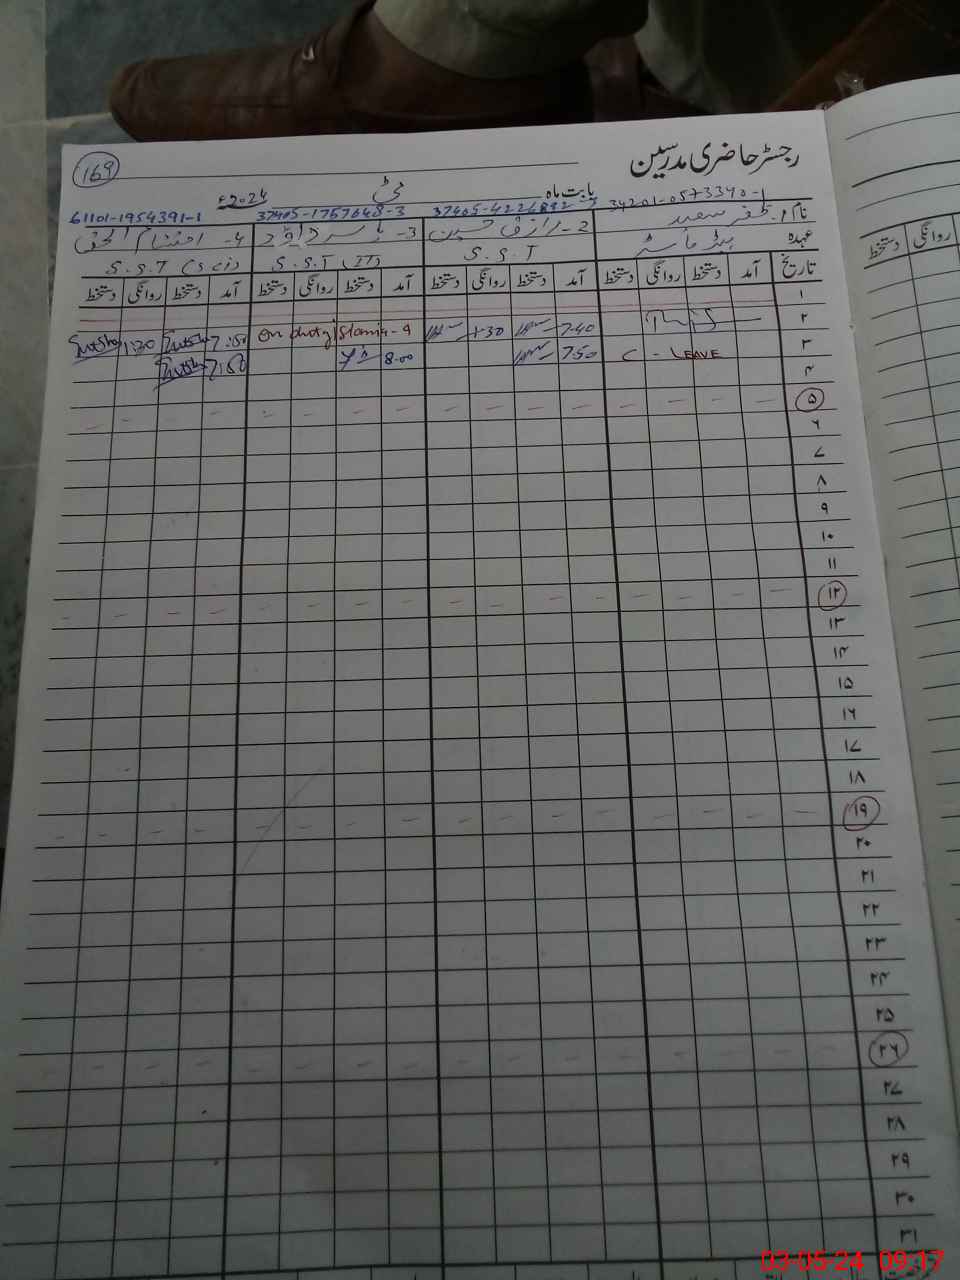 169
رجسٹر حاضری مدرسین
بابت ماہ مئی 2024ء
نام 1- ظفر سعید 34201-0573390-1
2- رازق حسین 37405-4226892-7
3- یاسر داؤد 37405-1757648-3
4- احتشام الحق 61101-1954391-1
عہدہ ہیڈ ماسٹر S.S.T S.S.T (IT) S.S.T (Sci)
تاریخ آمد دستخط روانگی دستخط آمد دستخط روانگی دستخط آمد دستخط روانگی دستخط آمد دستخط روانگی دستخط
۱
۲ 7.40 1.30 on duty Islamia-9 7:50 1:30
۳ C - LEAVE 7.50 8.00 7:50
۴
۵
۶
۷
۸
۹
۱۰
۱۱
۱۲
۱۳
۱۴
۱۵
۱۶
۱۷
۱۸
۱۹
۲۰
۲۱
۲۲
۲۳
۲۴
۲۵
۲۶
۲۷
۲۸
۲۹
۳۰
۳۱
روانگی دستخط
03-05-24 09:17